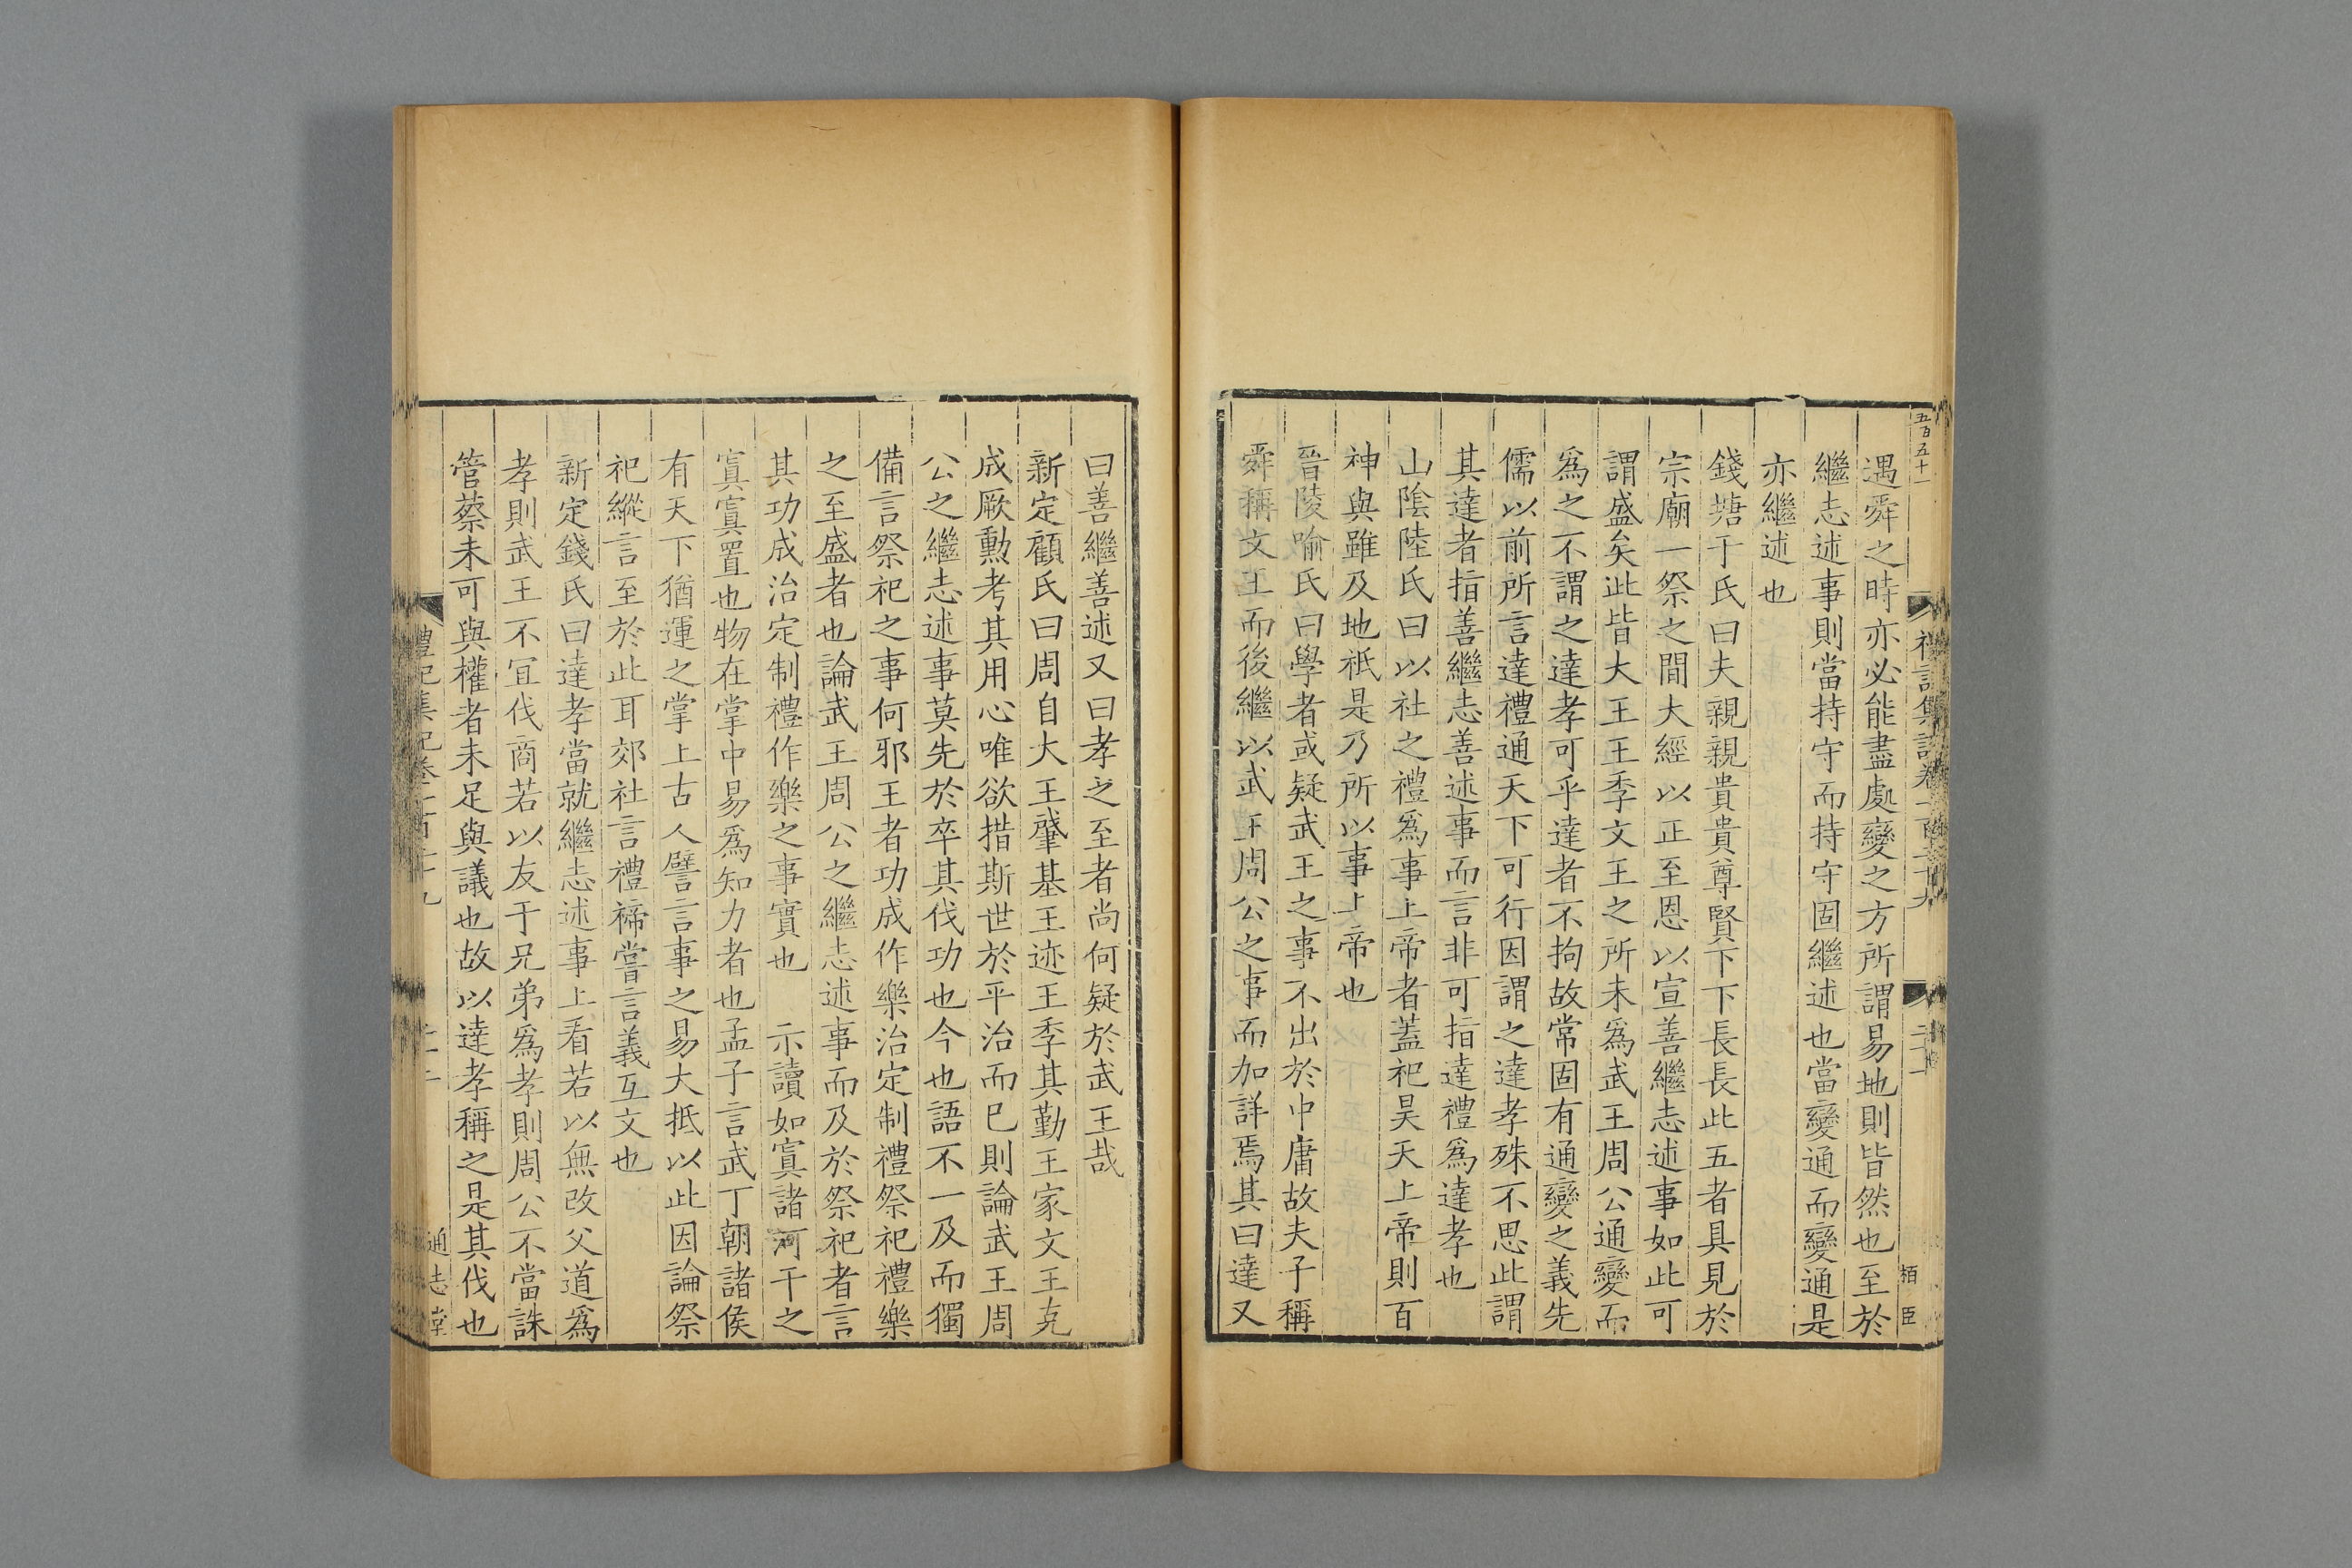 五百五十一
遇舜之時亦必能盡處變之方所謂易地則皆然也至於
繼志述事則當持守而持守固繼述也當變通而變通是
亦繼述也
錢塘于氏曰夫親親貴貴尊賢下下長長此五者具見於
宗廟一祭之間大經以正至恩以宣善繼志述事如此可
謂盛矣此皆大王王季文王之所未爲武王周公通變而
爲之不謂之達孝可乎達者不拘故常固有通變之義先
儒以前所言達禮通天下可行因謂之達孝殊不思此謂
其達者指善繼志善述事而言非可指達禮爲達孝也
山隂陸氏曰以社之禮爲事上帝者蓋祀昊天上帝則百
神與雖及地祇是乃所以事上帝也
晉陵喻氏曰學者或疑武王之事不出於中庸故夫子稱
舜稱文王而後繼以武王周公之事而加詳焉其曰達又
曰善繼善述又曰孝之至者尚何疑於武王哉
新定顧氏曰周自大王肇基王迹王季其勤王家文王克
成厥勳考其用心唯欲措斯世於平治而已則論武王周
公之繼志述事莫先於卒其伐功也今也語不一及而獨
備言祭祀之事何邪王者功成作樂治定制禮祭祀禮樂
之至盛者也論武王周公之繼志述事而及於祭祀者言
其功成治定制禮作樂之事實也　示讀如寘諸河干之
寘寘置也物在掌中易爲知力者也孟子言武丁朝諸侯
有天下猶運之掌上古人譬言事之易大抵以此因論祭
祀縱言至於此耳郊社言禮禘嘗言義互文也
新定錢氏曰達孝當就繼志述事上看若以無改父道爲
孝則武王不宜伐商若以友于兄弟爲孝則周公不當誅
管蔡未可與權者未足與議也故以達孝稱之是其伐也
通志堂